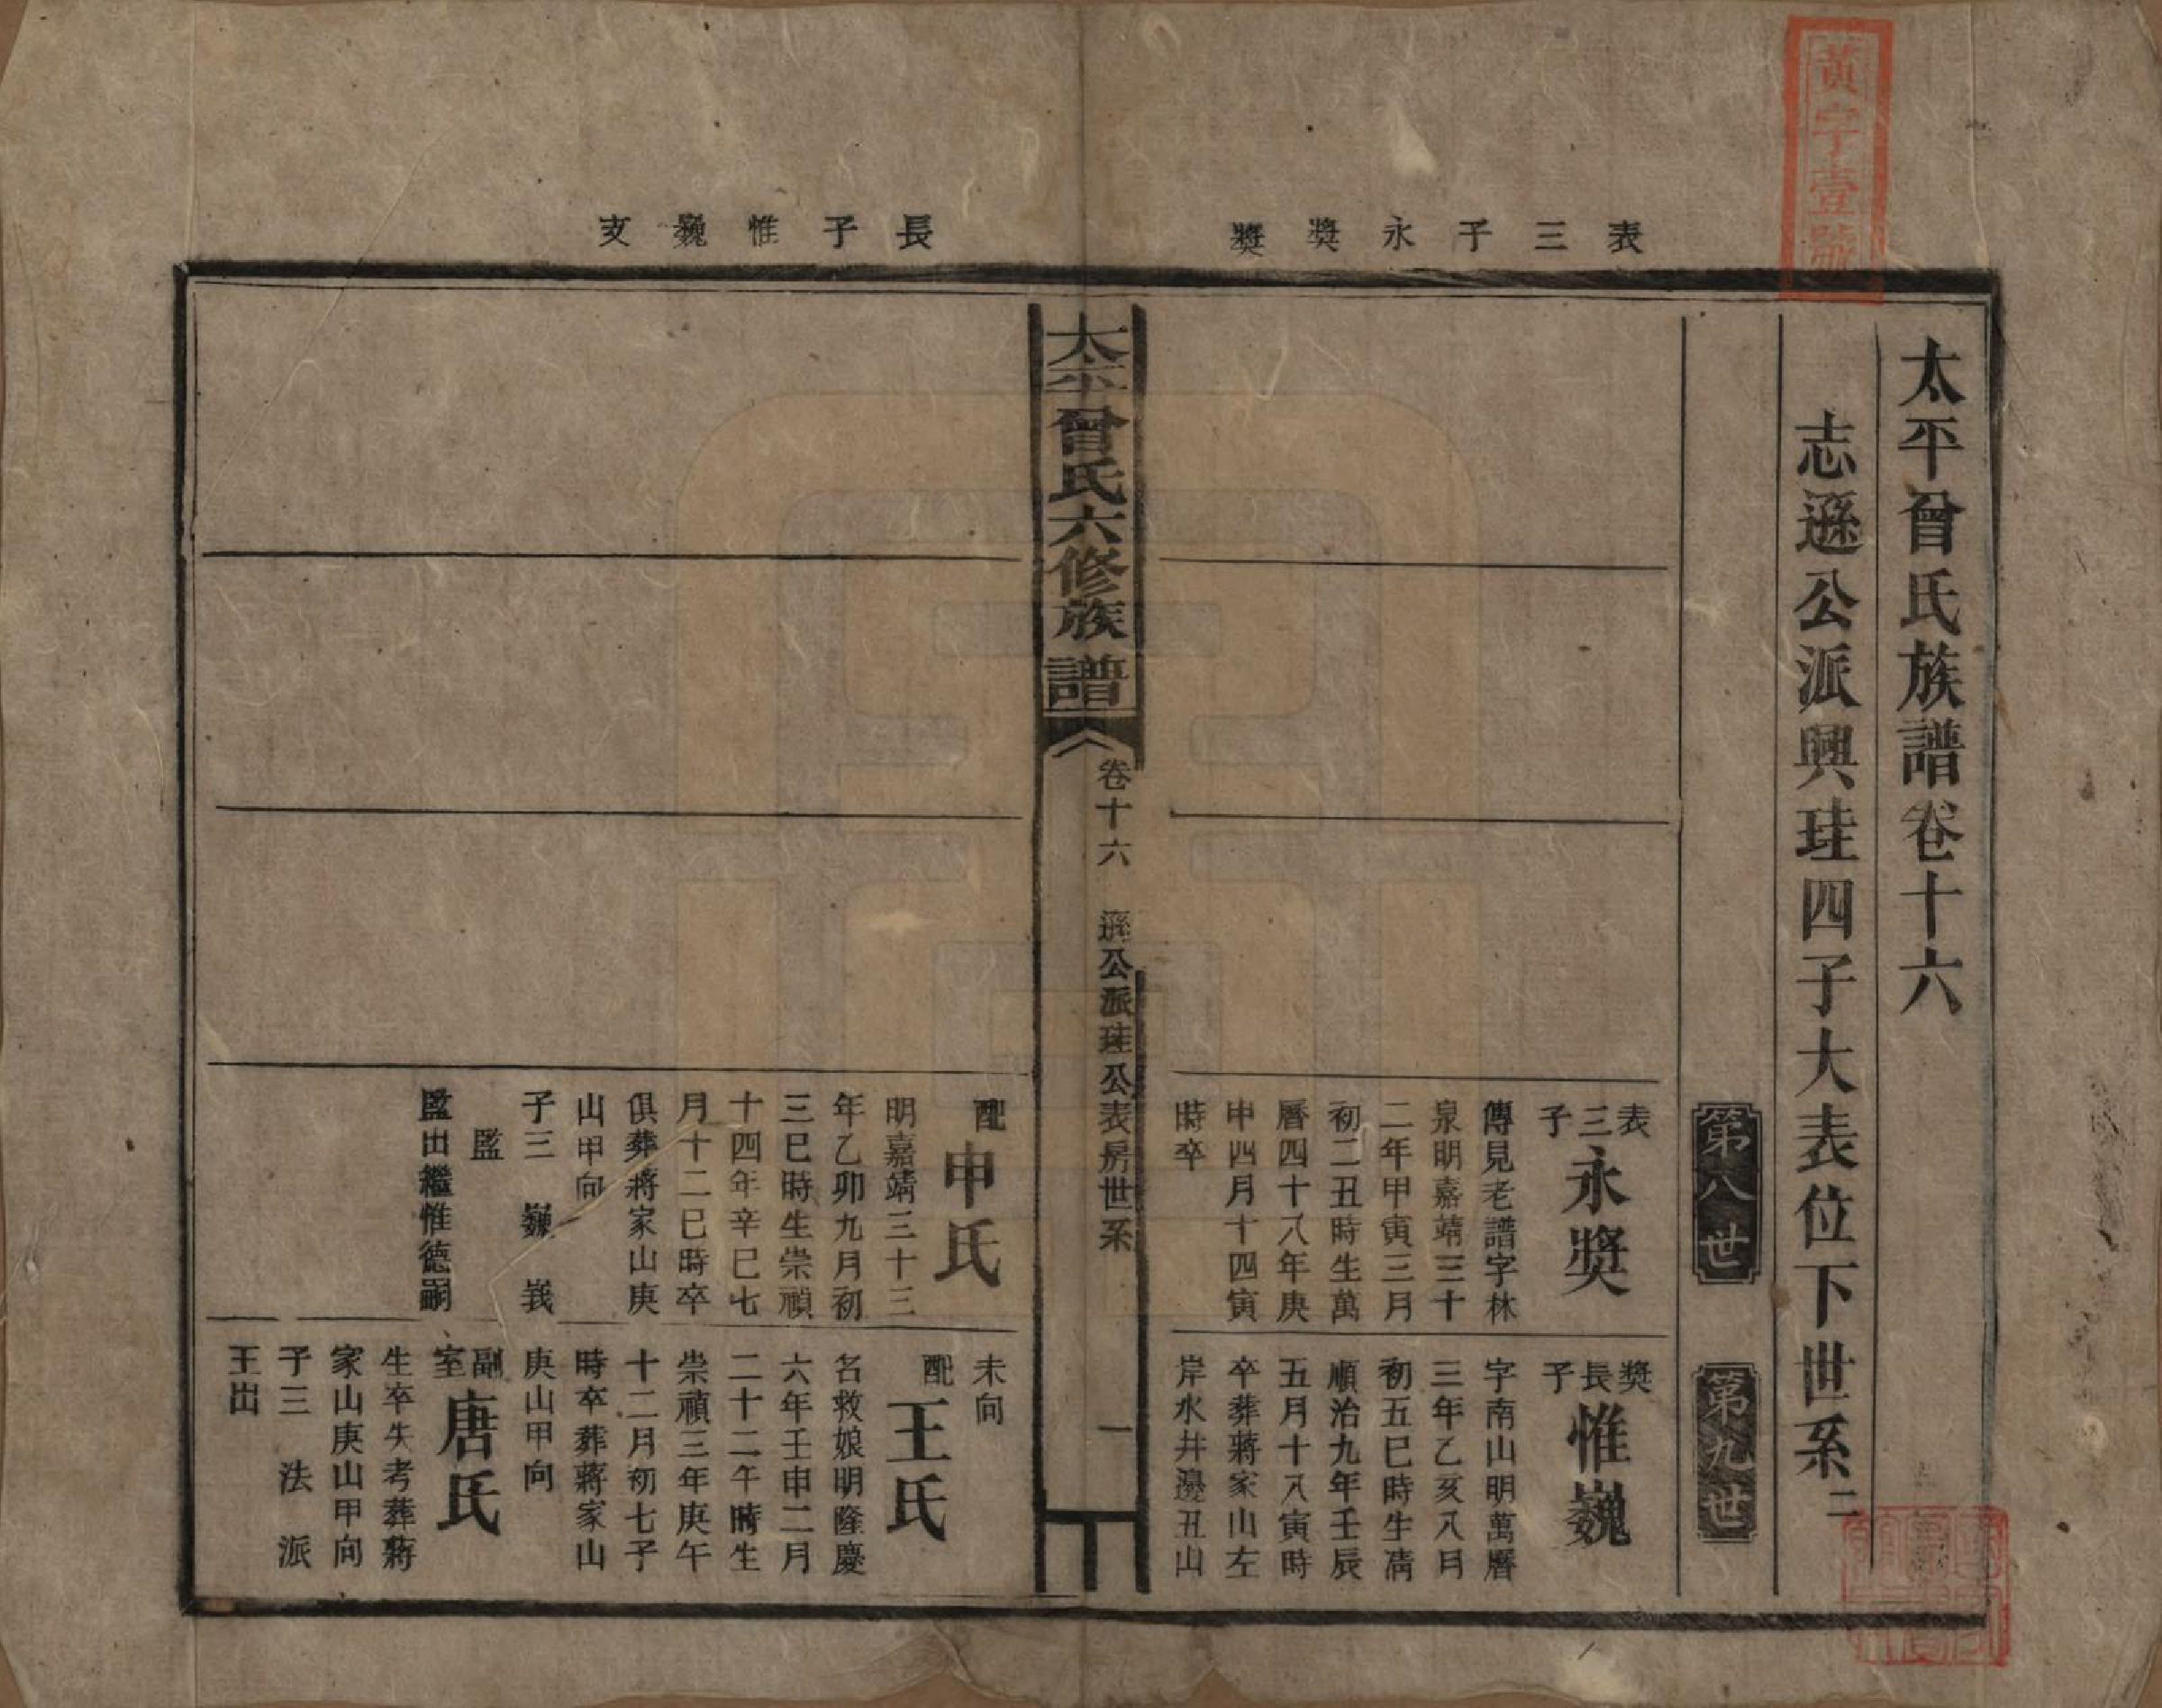 黃字壹號
太平曾氏族譜卷十六
志遜公派興珪四子大表位下世系二
第八世
第九世
表三子永獎獎
表三子
永獎
傳見老譜字林
泉明嘉靖三十
二年甲寅三月
初二丑時生萬
曆四十八年庚
申四月十四寅
時卒
獎長子
惟巍
字南山明萬曆
三年乙亥八月
初五巳時生淸
順治九年壬辰
五月十八寅時
卒葬蔣家山左
岸水井邊丑山
太平曾氏六修族譜
卷十六
遜公派珪公表房世系
一
長子惟巍支
配
申氏
明嘉靖三十三
年乙卯九月初
三巳時生崇禎
十四年辛巳七
月十二巳時卒
俱葬蔣家山庚
山甲向
子三 巍 峩
監
監出繼惟德嗣
未向
配
王氏
名救娘明隆慶
六年壬申二月
二十二午時生
崇禎三年庚午
十二月初七子
時卒葬蔣家山
庚山甲向
副室
唐氏
生卒失考葬蔣
家山庚山甲向
子三 法 派
王出